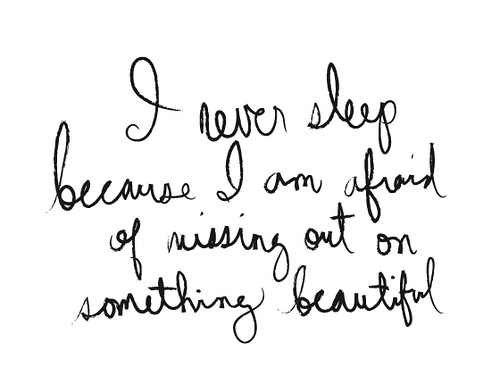 I never sleep
because I am afraid
of missing out on
something beautiful